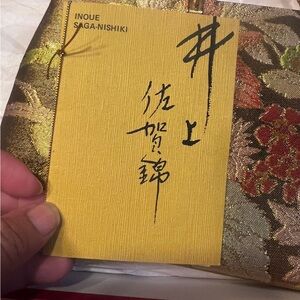 INOUE
SAGA-NISHIKI
井上
佐賀錦